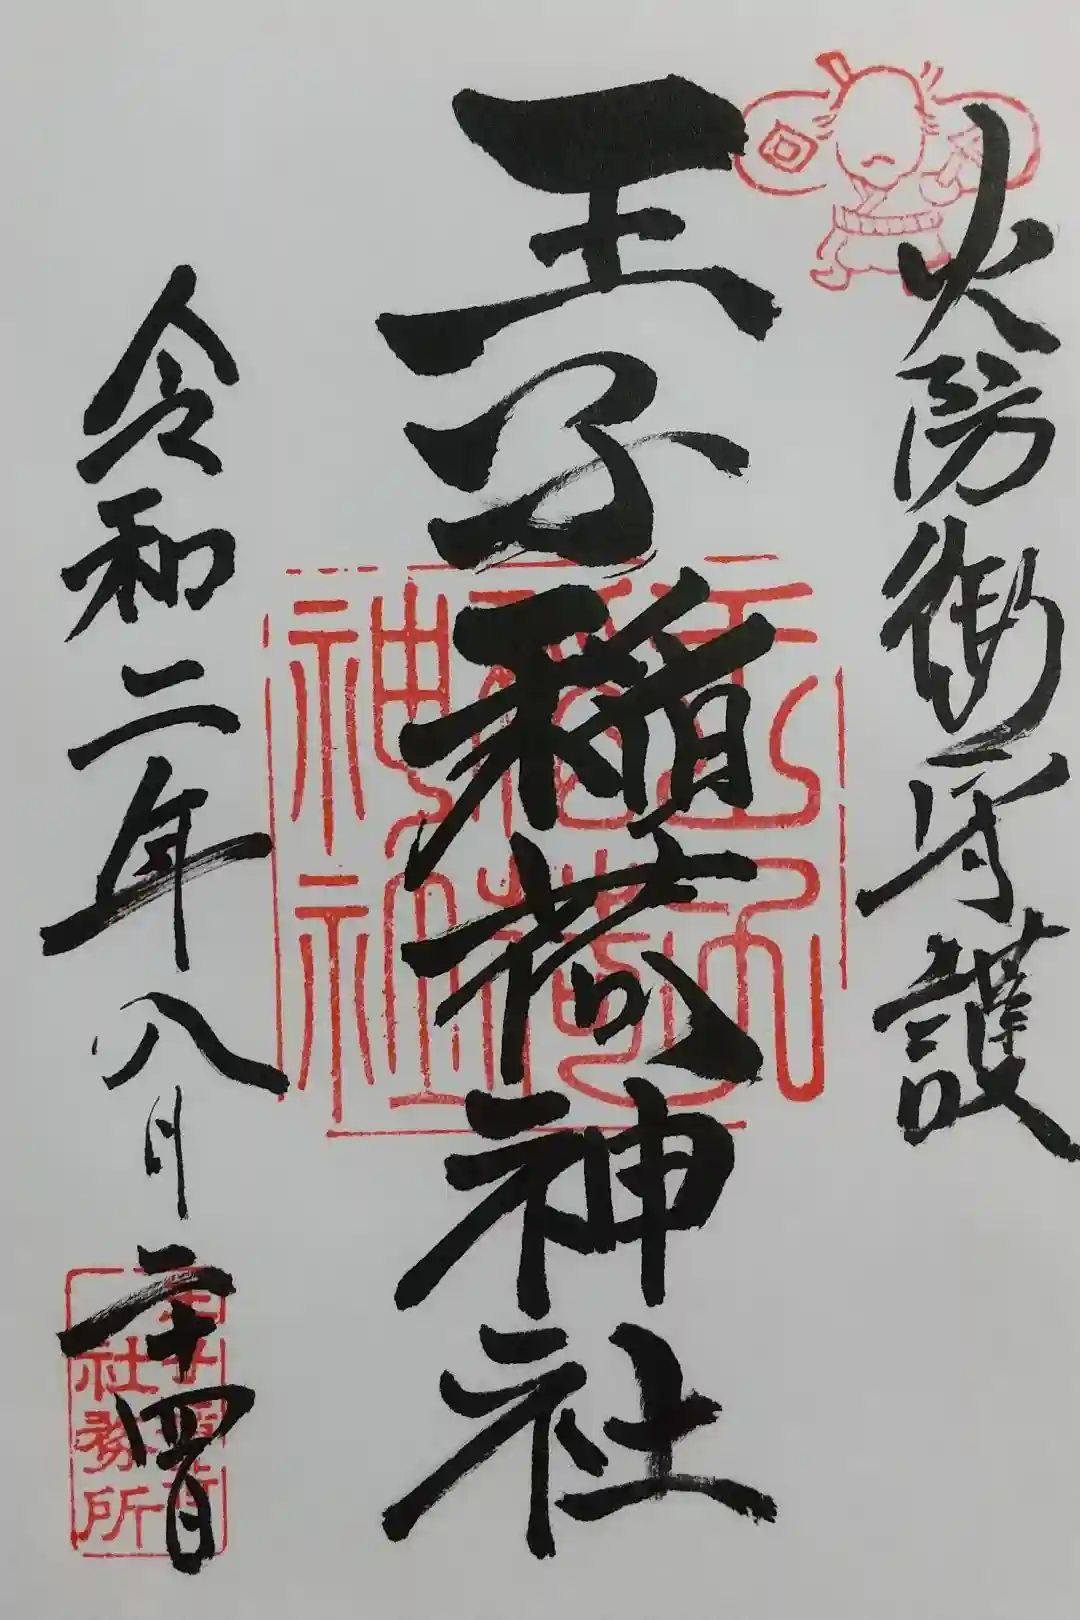 火防御守護
王子稲荷神社
王子稲荷神社
令和二年八月二十四日
王子稲荷
社務所